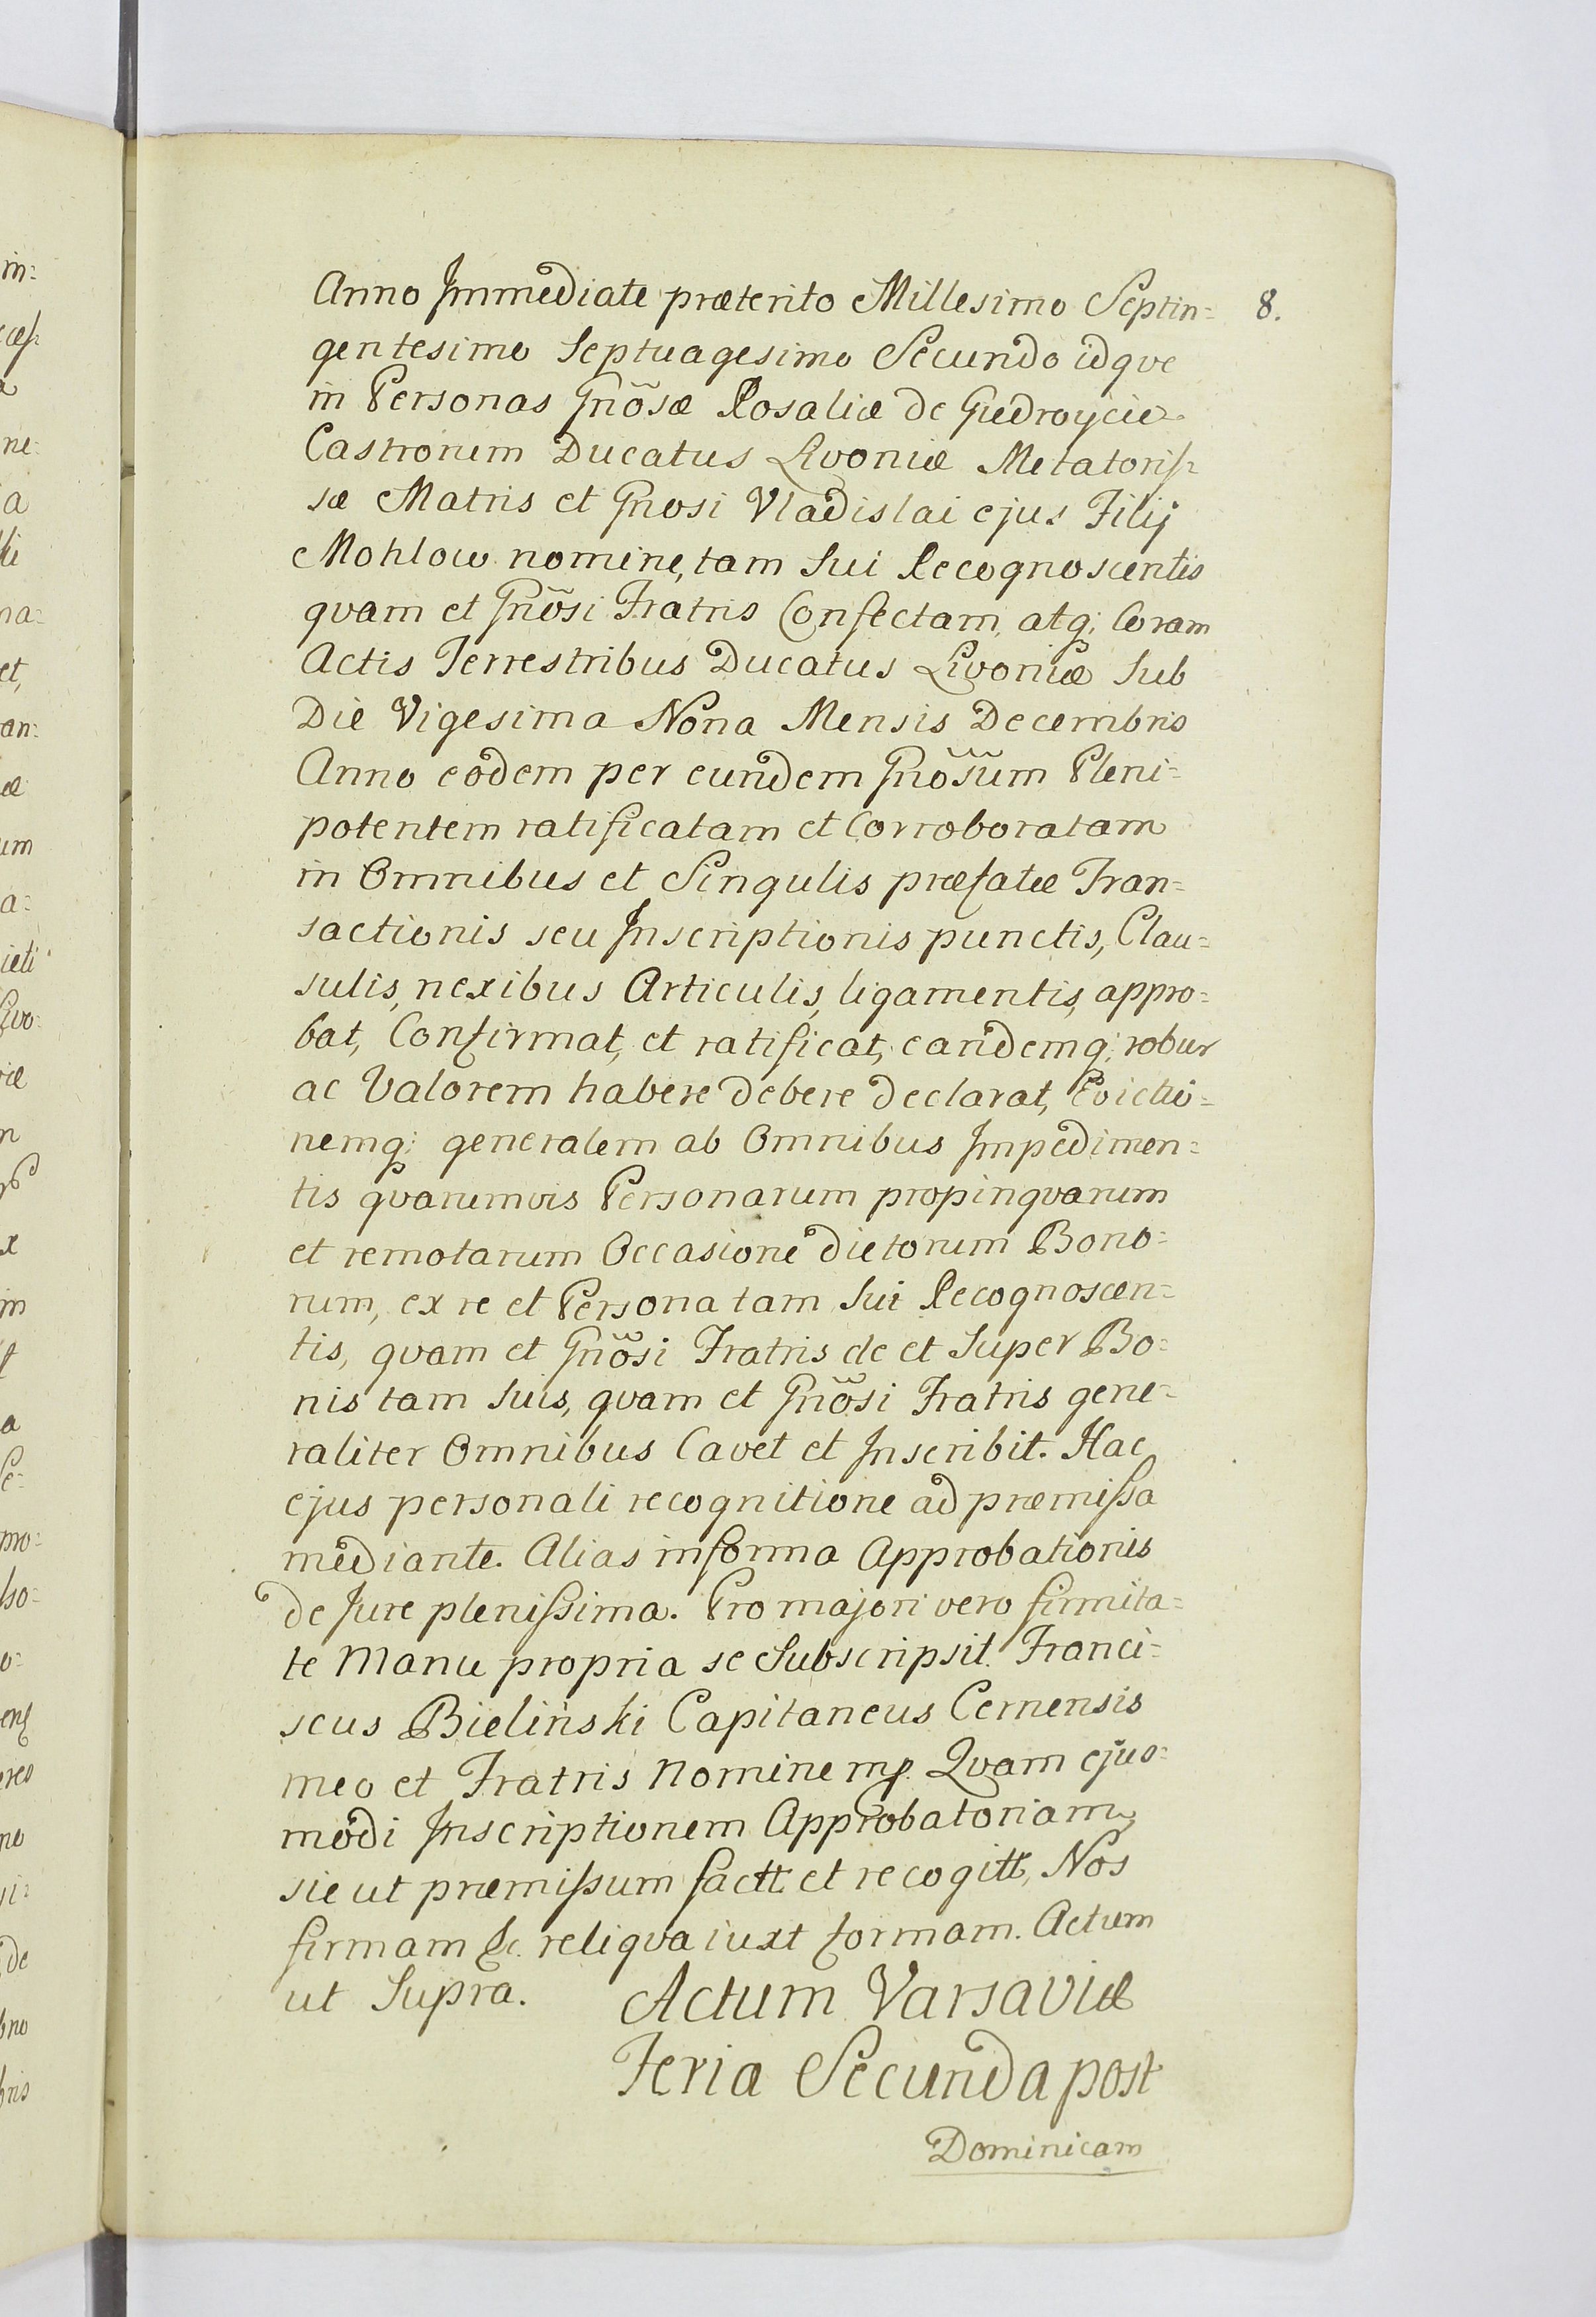 Anno Immediate præterito Millesimo Septin= 8.
gentesimo Septuagesimo Secundo idque
in Personas Gnõsæ Rosaliæ de Giedroycie
Castrorum Ducatus Livoniæ Metatoriſ=
sæ Matris et Gnosi Vladislai ejus Filij
Mohlow nomine, tam Sui Recognoscentis
quam et Gnõsi Fratris Confectam, atq; Coram
Actis Terrestribus Ducatus Livoniæ Sub
Die Vigesima Nona Mensis Decembris
Anno eodem per eundem Gnõsum Pleni=
potentem ratificatam et Corroboratam
in Omnibus et Singulis præfatæ Tran=
sactionis seu Inscriptionis punctis, Clau=
sulis, nexibus Articulis, ligamentis, appro=
bat, Confirmat, et ratificat, eandemq; robur
ac Valorem habere debere declarat, Evictio=
nemq; generalem ab Omnibus Impedimen=
tis quarumvis Personarum propinquarum
et remotarum Occasione dictorum Bono=
rum, ex re et Persona tam Sui Recognoscen=
tis, quam et Gnõsi Fratris de et Super Bo=
nis tam Suis, quam et Gnõsi Fratris gene=
raliter Omnibus Cavet et Inscribit. Hac
ejus personali recognitione ad præmiſsa
mediante. Alias in forma Approbationis
de Jure pleniſsima. Pro majori vero firmita=
te Manu propria se Subscripsit. Franci=
scus Bieliński Capitaneus Cernensis
meo et Fratris Nomine mp. Quam ejus=
modi Inscriptionem Approbatoriam
sicut præmiſsum factt et recogitt, Nos
firmam &c. reliqua iuxt formam. Actum
ut Supra. Actum Varsaviæ
Feria Secunda post
Dominicam